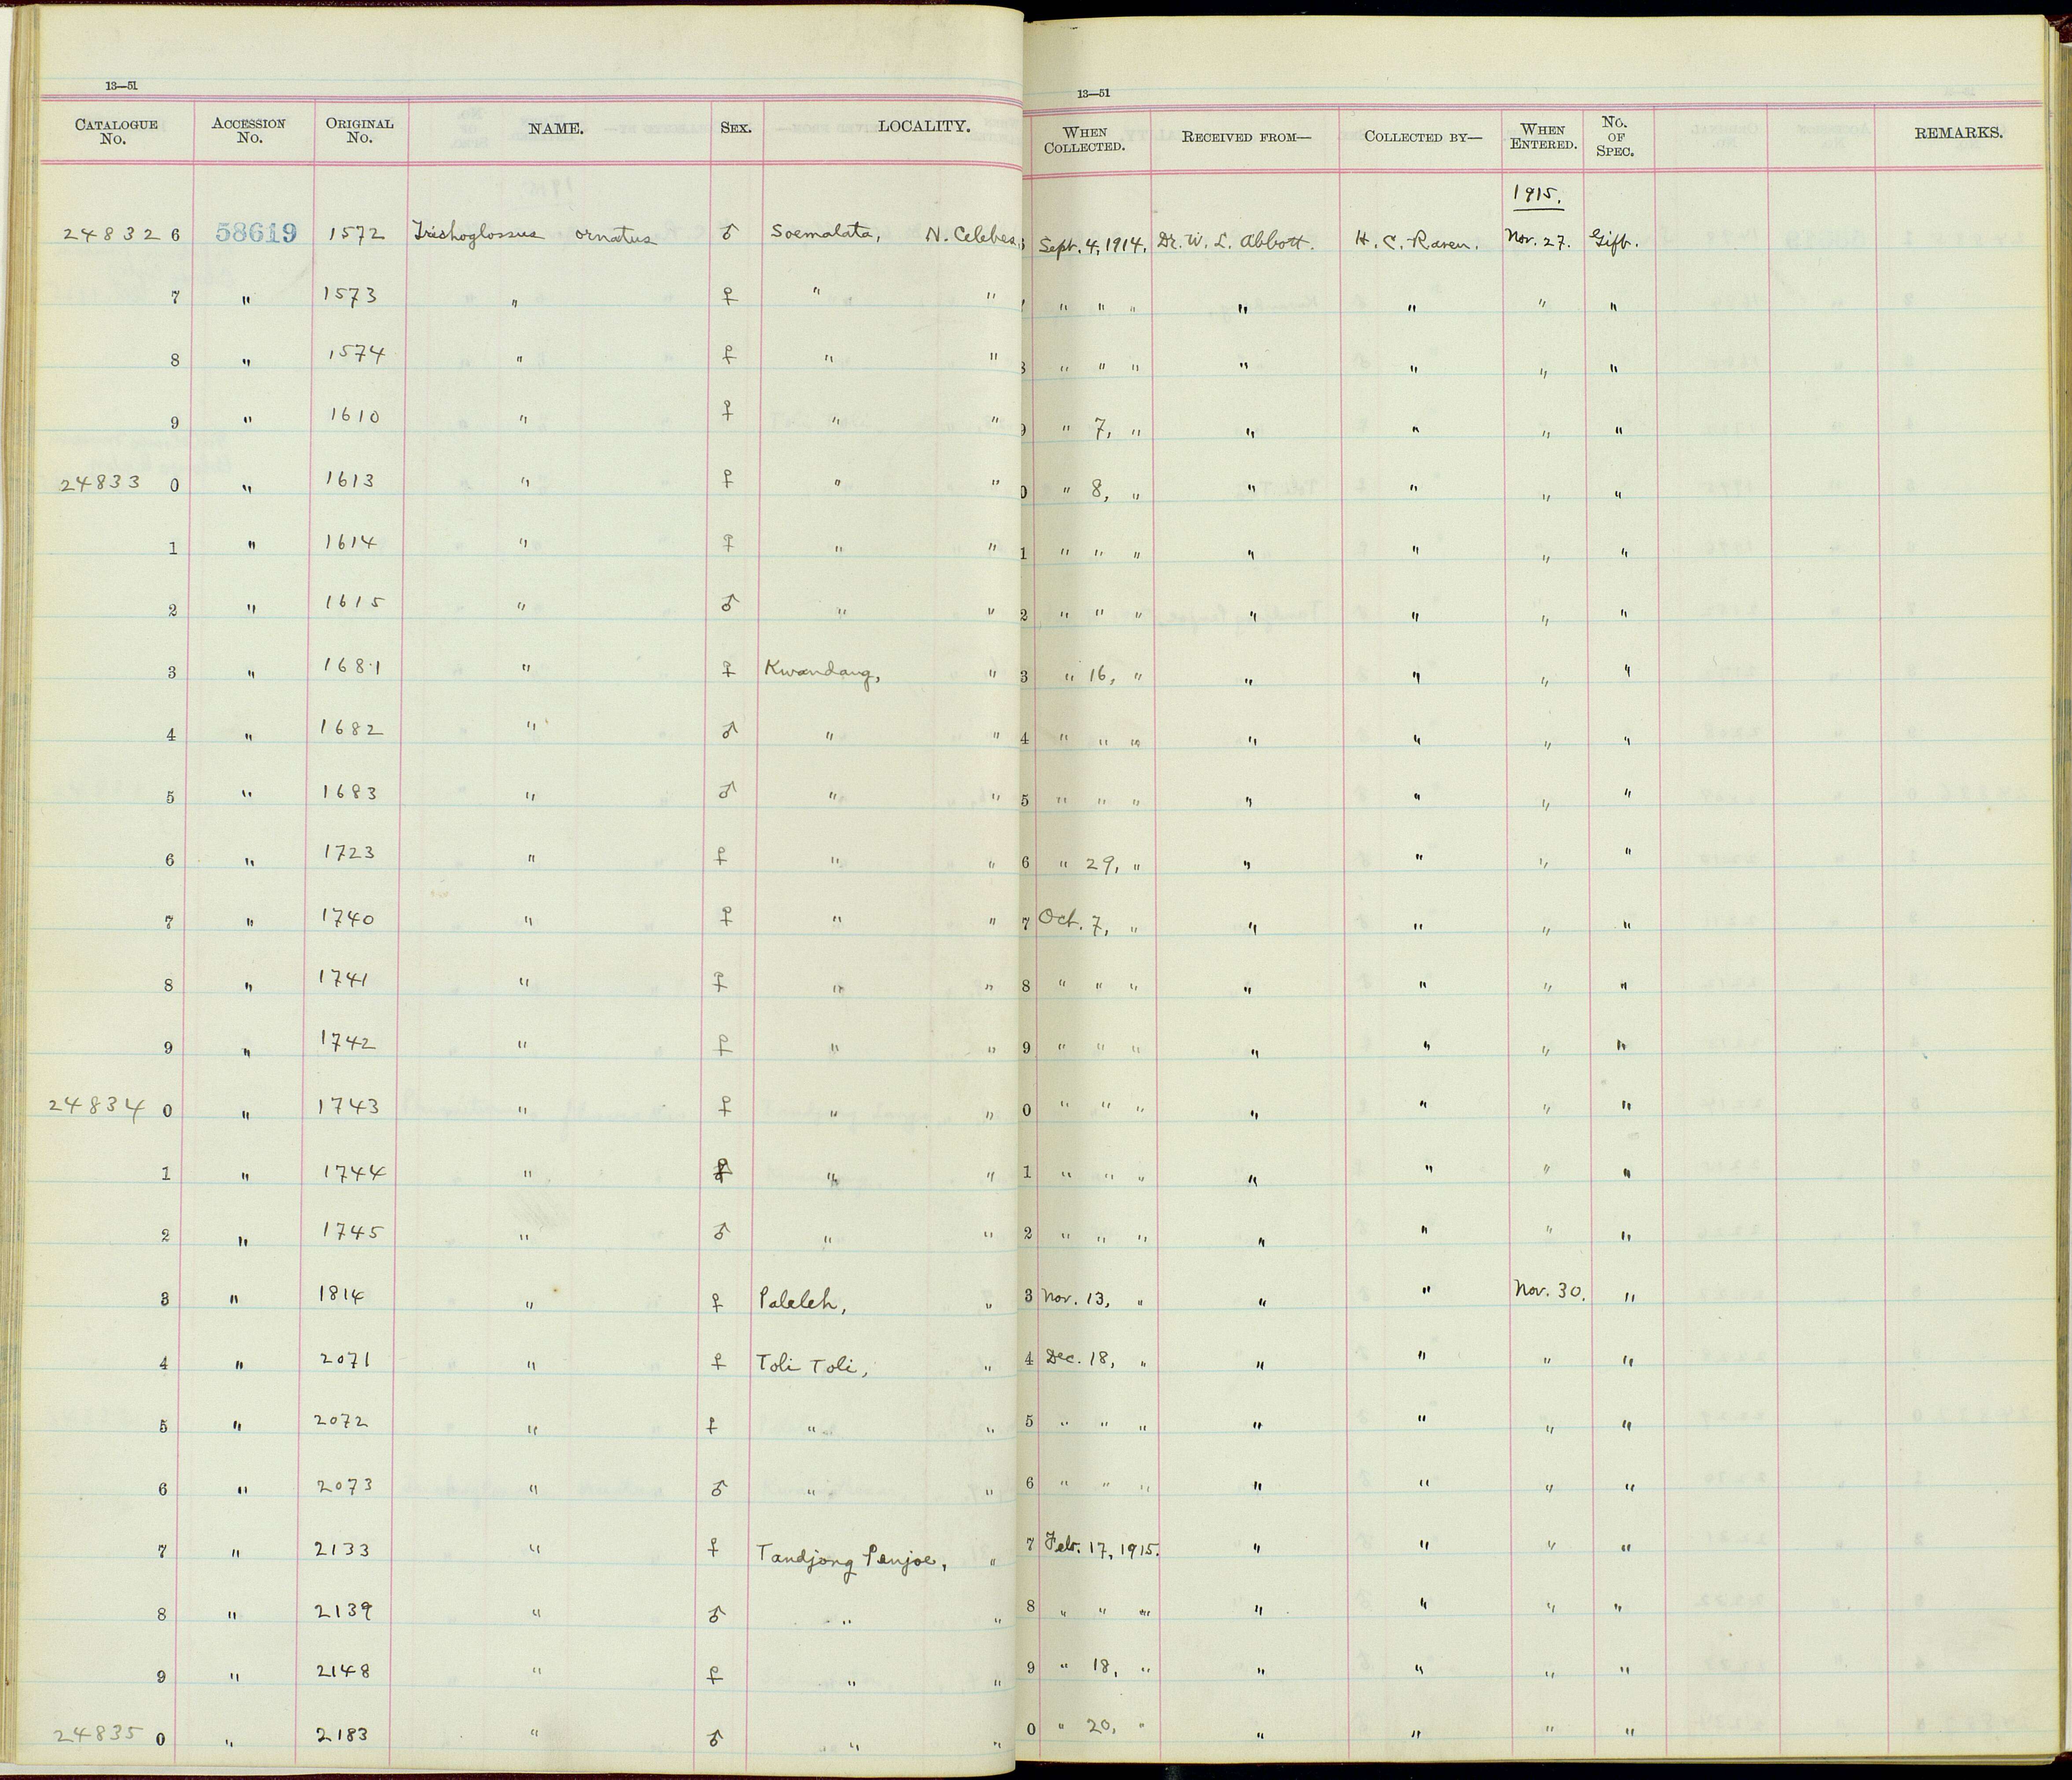 13—51
13—51
CATALOGUE No. ACCESSION No. ORIGINAL No. NAME. SEX. LOCALITY. WHEN COLLECTED. RECEIVED FROM— COLLECTED BY— WHEN ENTERED. No. OF SPEC. REMARKS.
1915.
248326 58619 1572 Trichoglossus ornatus ♂ Soemalata, N. Celebes, Sept. 4, 1914. Dr. W. L. Abbott. H. C. Raven. Nov. 27. Gift.
7 " 1573 " ♀ " " " " " " " " "
8 " 1574 " ♀ " " " " " " " " "
9 " 1610 " ♀ " " 9 " 7, " " " " "
24833 0 " 1613 " ♀ " " 0 " 8, " " " " "
1 " 1614 " ♀ " " 1 " " " " " " "
2 " 1615 " ♂ " " 2 " " " " " " "
3 " 1681 " ♀ Kwandang, " 3 " 16, " " " " "
4 " 1682 " ♂ " " 4 " " " " " " "
5 " 1683 " ♂ " " 5 " " " " " " "
6 " 1723 " ♀ " " 6 " 29, " " " " "
7 " 1740 " ♀ " " 7 Oct. 7, " " " " "
8 " 1741 " ♀ " " 8 " " " " " " "
9 " 1742 " ♀ " " 9 " " " " " " "
24834 0 " 1743 " ♀ " " 0 " " " " " " "
1 " 1744 " " " 1 " " " " " " "
2 " 1745 " ♂ " " 2 " " " " " " "
3 " 1814 " ♀ Paleleh, " 3 Nov. 13, " " " Nov. 30. "
4 " 2071 " ♀ Toli Toli, " 4 Dec. 18, " " " " "
5 " 2072 " ♀ " " 5 " " " " " " "
6 " 2073 " ♂ " " 6 " " " " " " "
7 " 2133 " ♀ Tandjong Penjoe, " 7 Feb. 17, 1915. " " " "
8 " 2139 " ♂ " " 8 " " " " " " "
9 " 2148 " ♀ " " 9 " 18, " " " " "
24835 0 " 2183 " ♂ " " 0 " 20, " " " " "